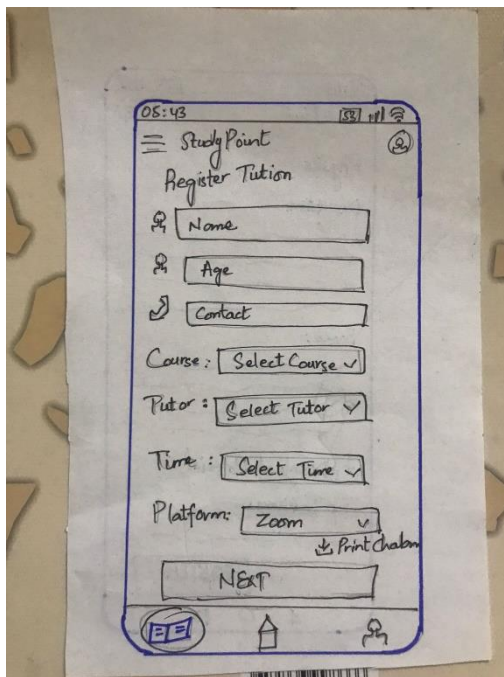 05:43 53
Study Point
Register Tution
Name
Age
Contact
Course: Select Course
Tutor: Select Tutor
Time: Select Time
Platform: Zoom
Print Chalan
NEXT